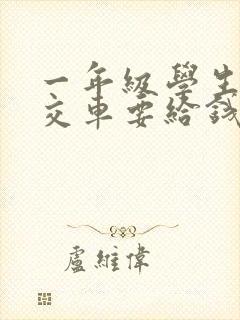 一年級學生
交車要給錢
盧維偉